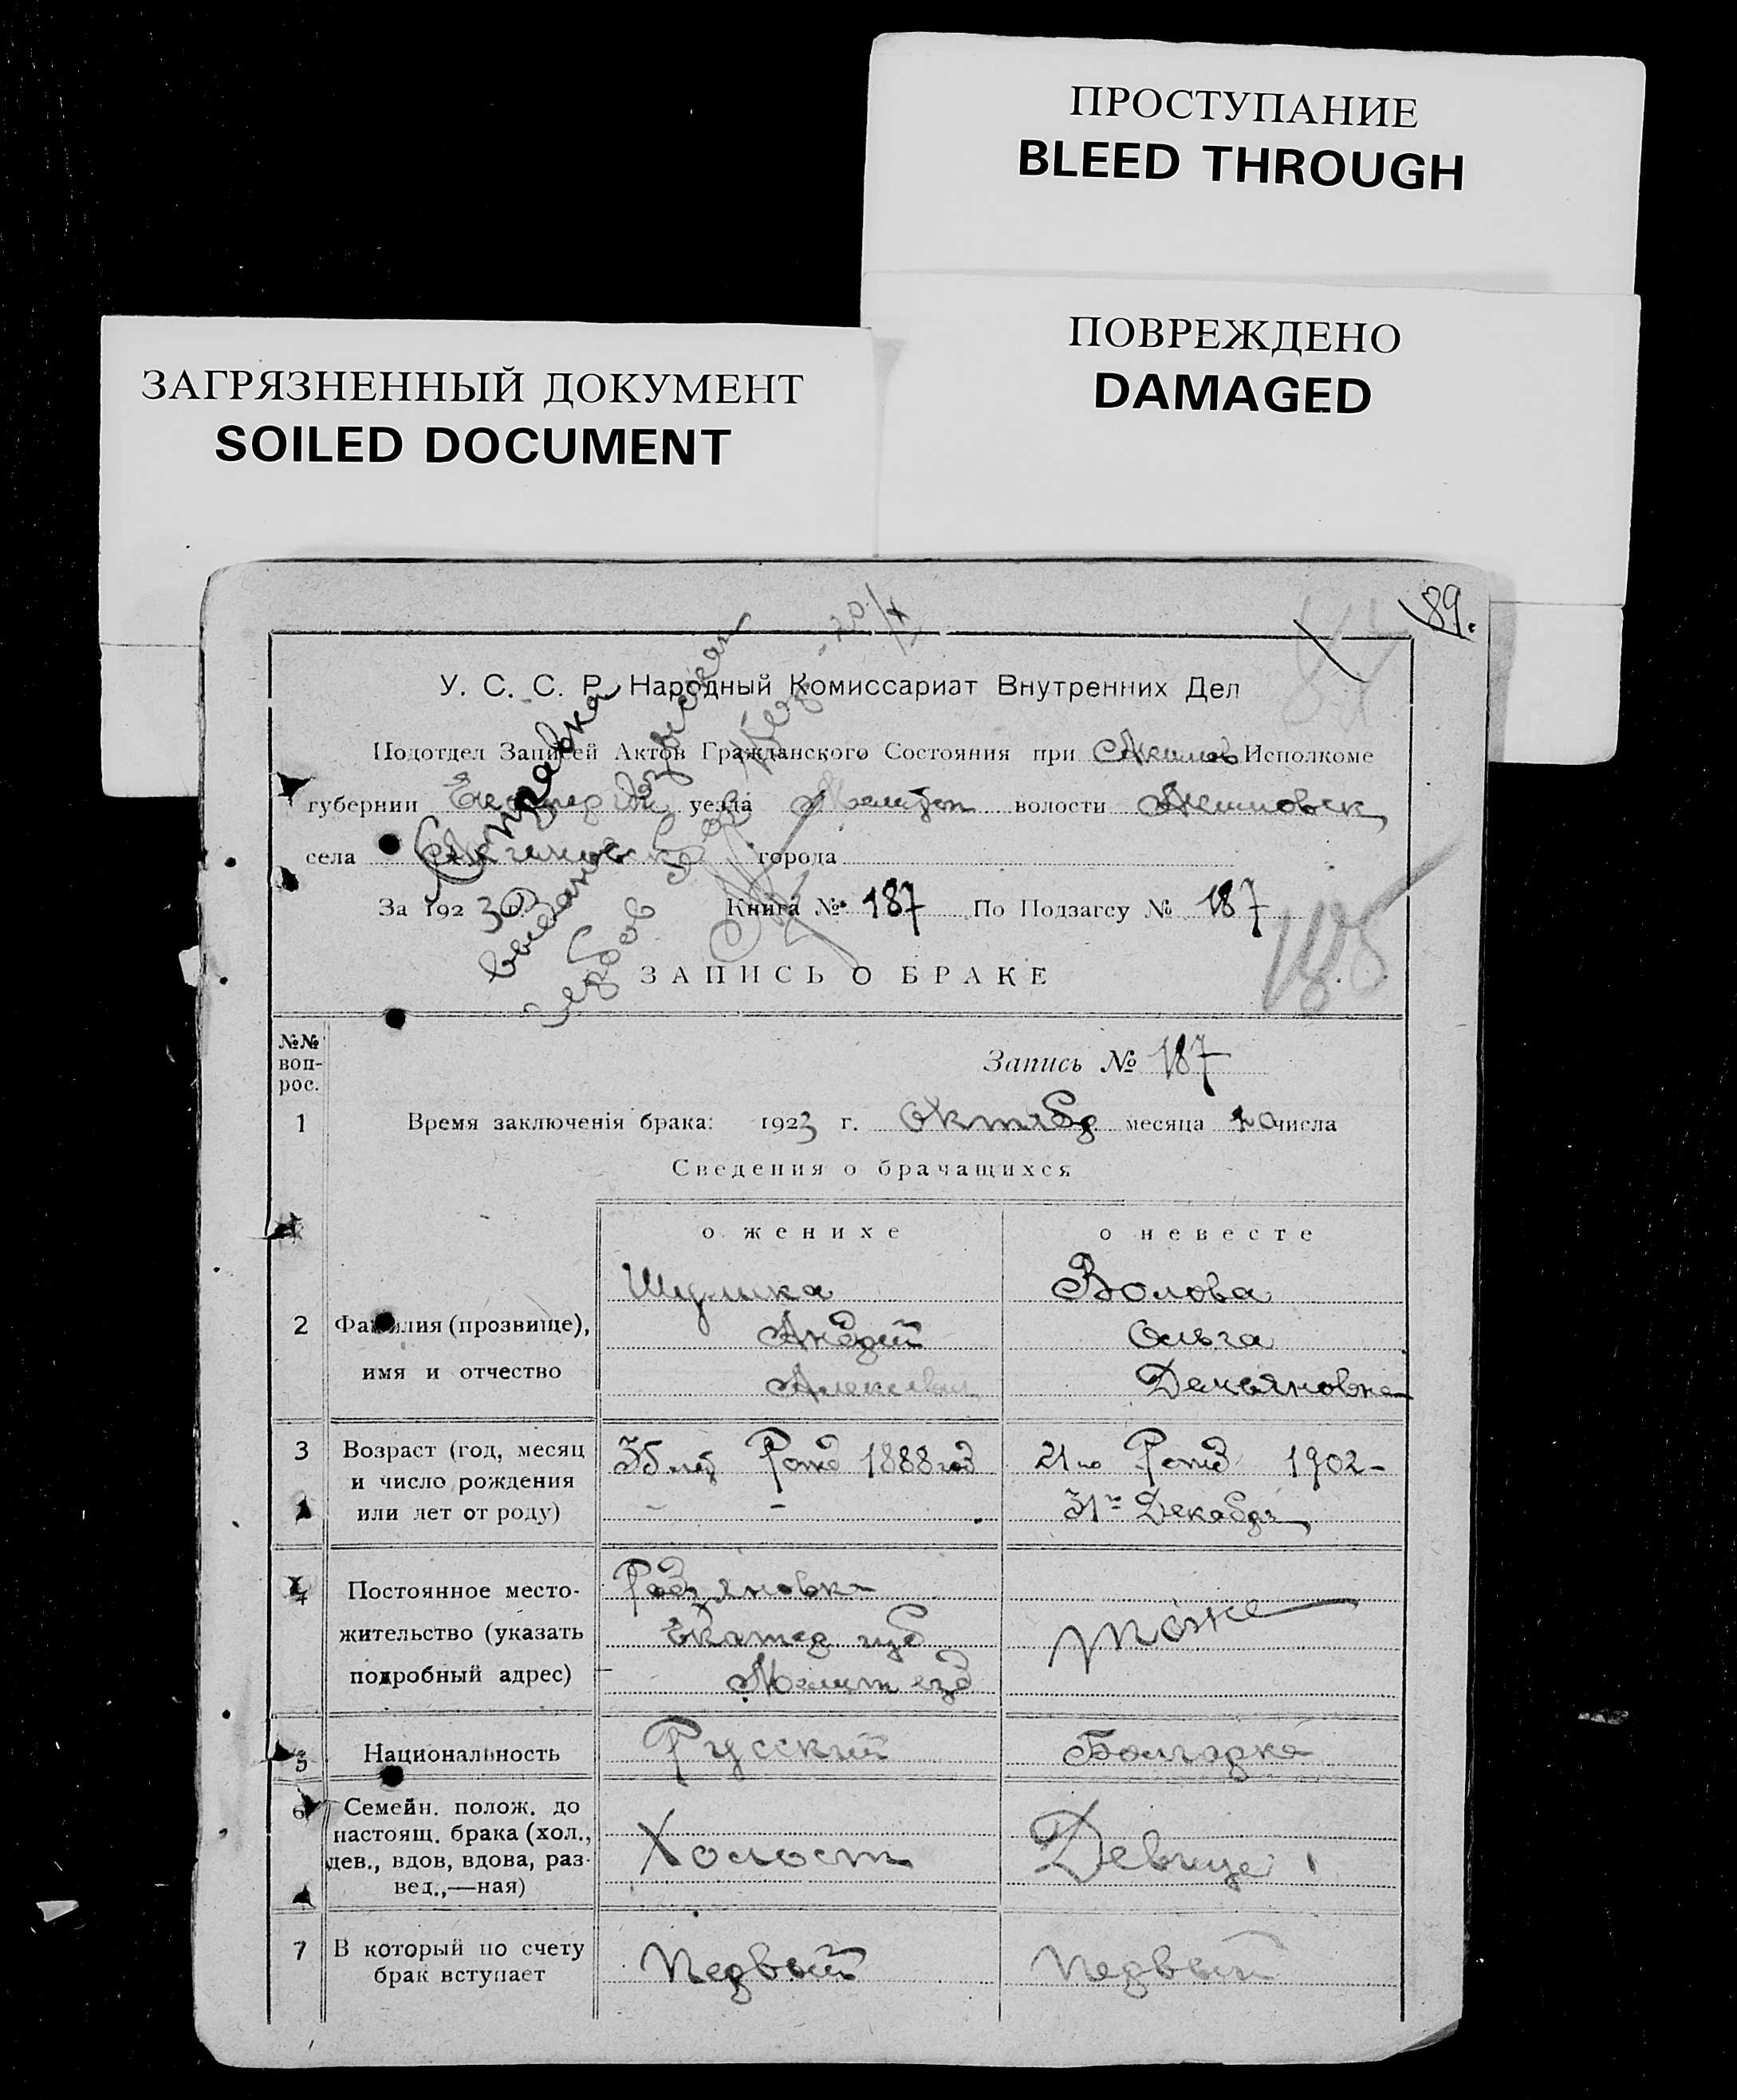 ПРОСТУПАНИЕ
BLEED THROUGH
ПОВРЕЖДЕНО
DAMAGED
ЗАГРЯЗНЕННЫЙ ДОКУМЕНТ
SOILED DOCUMENT
89.
У. С. С. Р. Народный Комиссариат Внутренних Дел
Подотдел Записей Актов Гражданского Состояния при Акимов Исполкоме
губернии уезда Мелитоп волости Акимовск
села города
За 1923 Книга № 187 По Подзагсу № 187
Справка
выдана
ЗАПИСЬ О БРАКЕ
№№ воп-
рос.
Запись № 187
1 Время заключенія брака: 1923 г. Октябр месяца 20 числа
Сведения о брачащихся
о женихе о невесте
Волова
2 Фамилия (прозвище), Андрей Ольга
имя и отчество Алексеев Демьяновна
3 Возраст (год, месяц 35 лет Рожд 1888 год 21 го Рожд 1902 -
и число рождения 31го Декабря
или лет от роду)
4 Постоянное место- Родзяновка
жительство (указать Екатер губ тоже
подробный адрес) Мелит уезд
5 Национальность Русский Болгарка
6 Семейн. полож. до
настоящ. брака (хол., Холост Девица
дев., вдов, вдова, раз-
вед.,—ная)
7 В который по счету Первый Первый
брак вступает